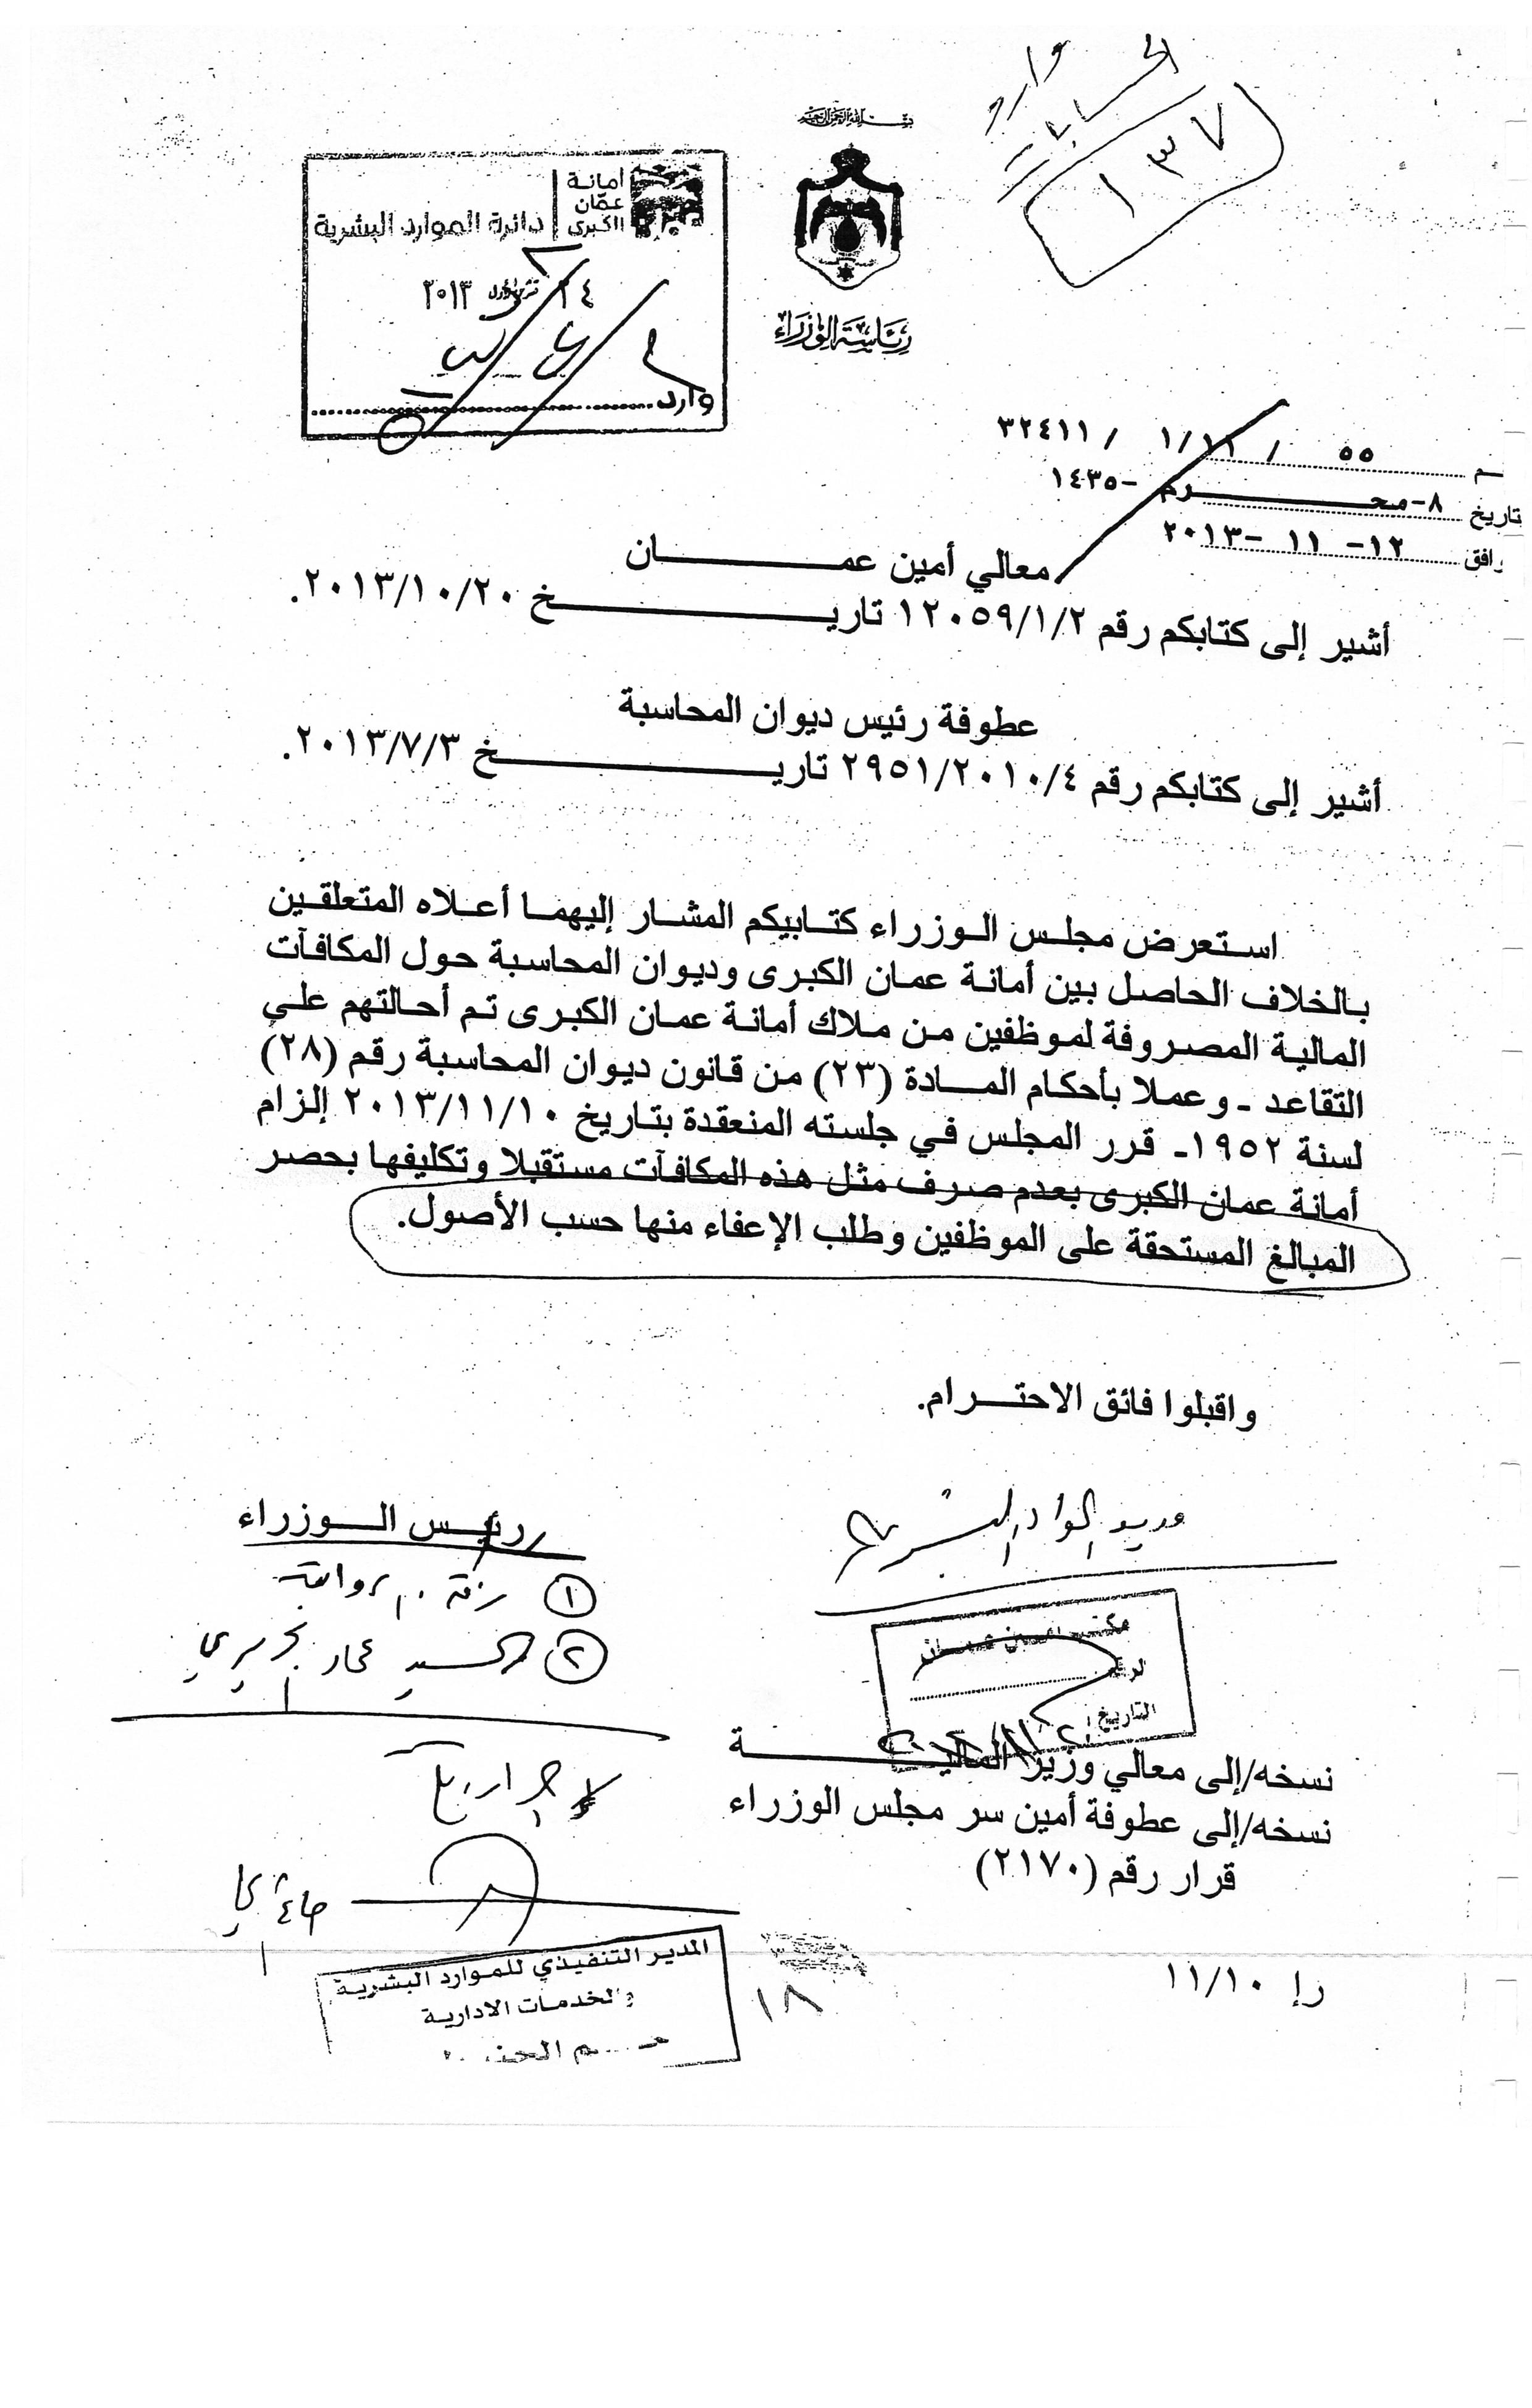 بسم الله الرحمن الرحيم
١٣٧
أمانة
عمّان
الكبرى
دائرة الموارد البشرية
٢٠١٣
وارد
رئاسة الوزراء
٥٥ / ١١/١ / ٣٢٤١١
تاريخ ٨-محـــرم -١٤٣٥
وافق ١٢- ١١ -٢٠١٣
معالي أمين عمـــــان
أشير إلى كتابكم رقم ١٢٠٥٩/١/٢ تاريـــــخ ٢٠١٣/١٠/٢٠.
عطوفة رئيس ديوان المحاسبة
أشير إلى كتابكم رقم ٢٩٥١/٢٠١٠/٤ تاريـــــخ ٢٠١٣/٧/٣.
استعرض مجلس الوزراء كتابيكم المشار إليهما أعلاه المتعلقين
بالخلاف الحاصل بين أمانة عمان الكبرى وديوان المحاسبة حول المكافآت
المالية المصروفة لموظفين من ملاك أمانة عمان الكبرى تم أحالتهم على
التقاعد - وعملا بأحكام المـادة (٢٣) من قانون ديوان المحاسبة رقم (٢٨)
لسنة ١٩٥٢- قرر المجلس في جلسته المنعقدة بتاريخ ٢٠١٣/١١/١٠ إلزام
أمانة عمان الكبرى بعدم صرف مثل هذه المكافآت مستقبلا وتكليفها بحصر
المبالغ المستحقة على الموظفين وطلب الإعفاء منها حسب الأصول.
واقبلوا فائق الاحتـــرام.
رئيس الـــوزراء
مدير الموارد البشرية
١
٢ السيد عمار
مكتب امين عمان
الرقم
التاريخ
نسخه/إلى معالي وزير الماليـــــة
نسخه/إلى عطوفة أمين سر مجلس الوزراء
قرار رقم (٢١٧٠)
المدير التنفيذي للموارد البشرية
والخدمات الادارية
١٨
ر إ ١١/١٠